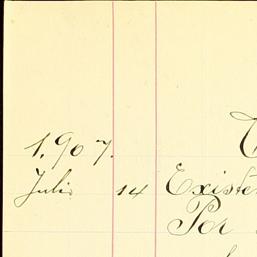 1,907.
Julio 14 Existen
Por